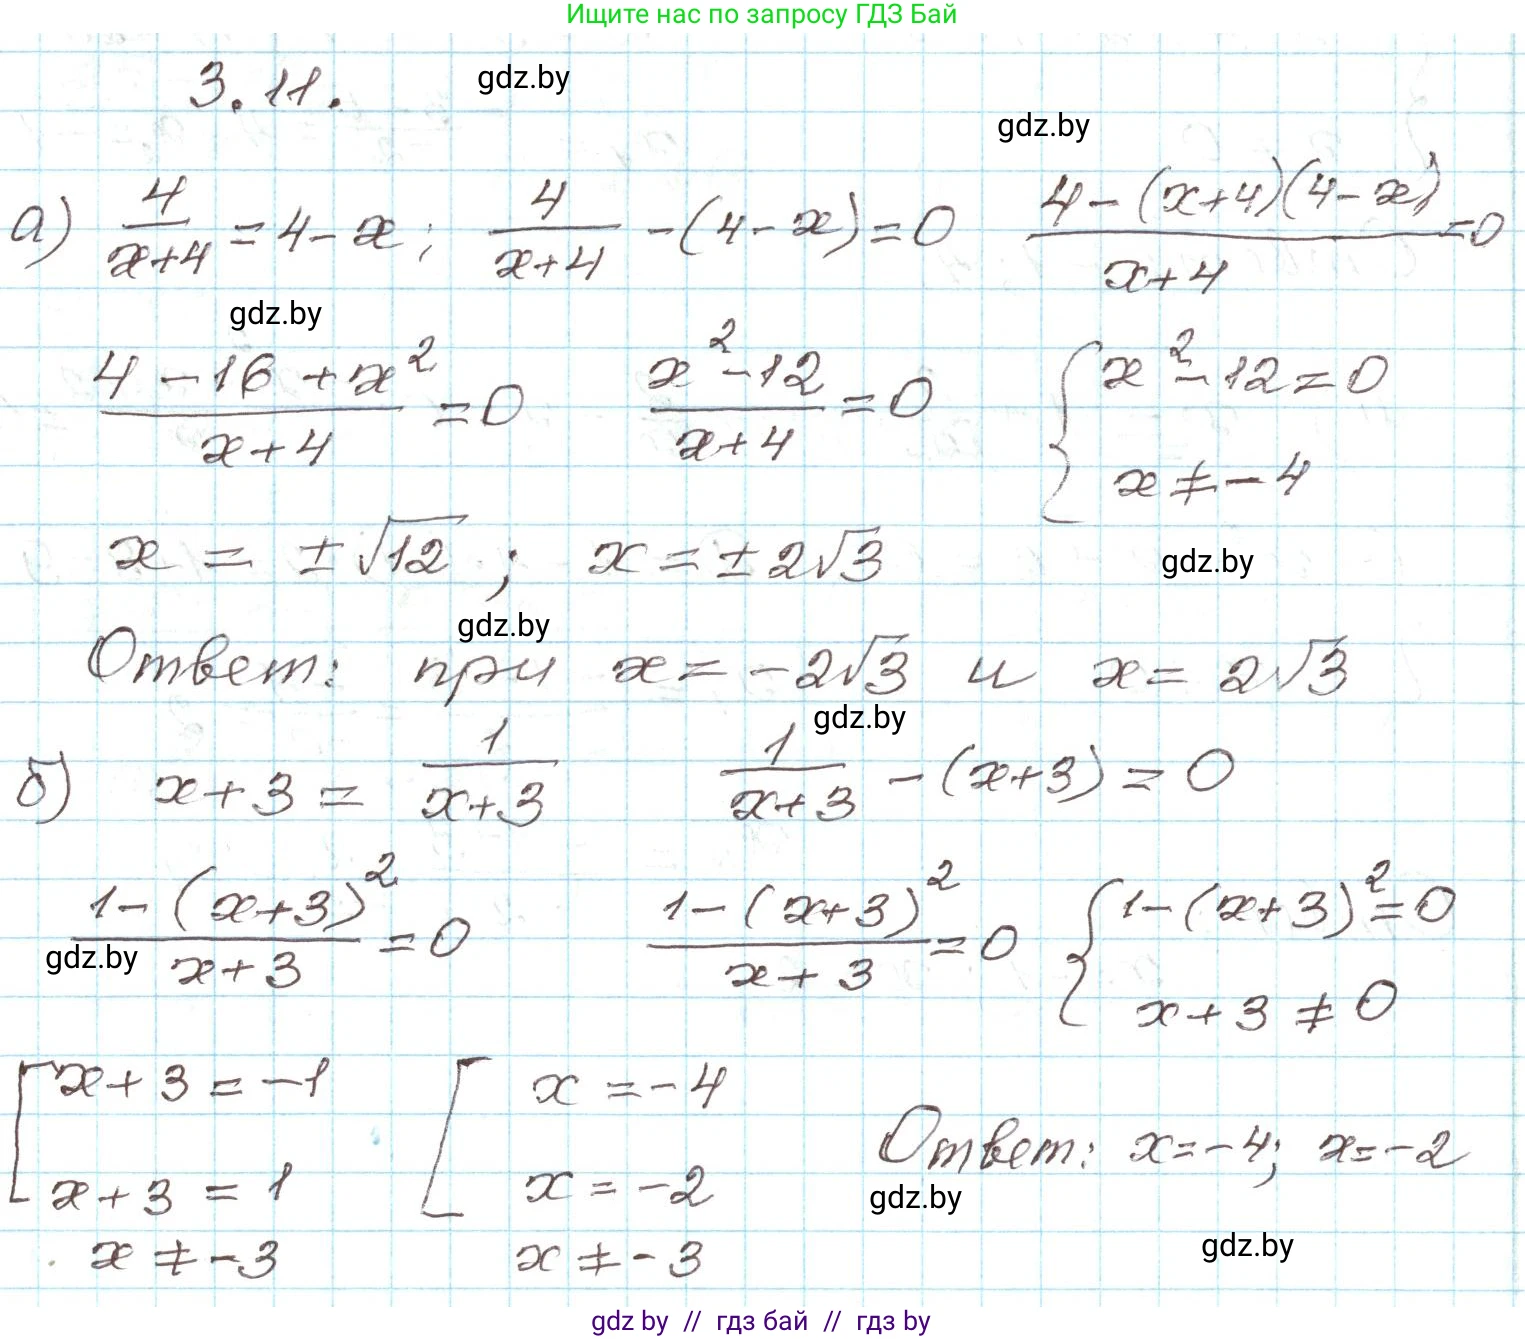 Ищите нас по запросу ГДЗ Бай
3.11.
gdz.by
gdz.by
а) 4/(x+4) = 4 - x; 4/(x+4) - (4 - x) = 0 (4 - (x+4)(4 - x))/(x+4) = 0
gdz.by
(4 - 16 + x²)/(x+4) = 0 (x² - 12)/(x+4) = 0 { x² - 12 = 0
x ≠ -4
x = ±√12; x = ±2√3
gdz.by
gdz.by
Ответ: при x = -2√3 и x = 2√3
gdz.by
б) x + 3 = 1/(x+3) 1/(x+3) - (x+3) = 0
(1 - (x+3)²)/(x+3) = 0 (1 - (x+3)²)/(x+3) = 0 { 1 - (x+3)² = 0
gdz.by
x + 3 ≠ 0
[ x + 3 = -1 [ x = -4
Ответ: x = -4; x = -2
x + 3 = 1 x = -2
gdz.by
x ≠ -3 x ≠ -3
gdz.by
gdz by // гдз бай // гдз by